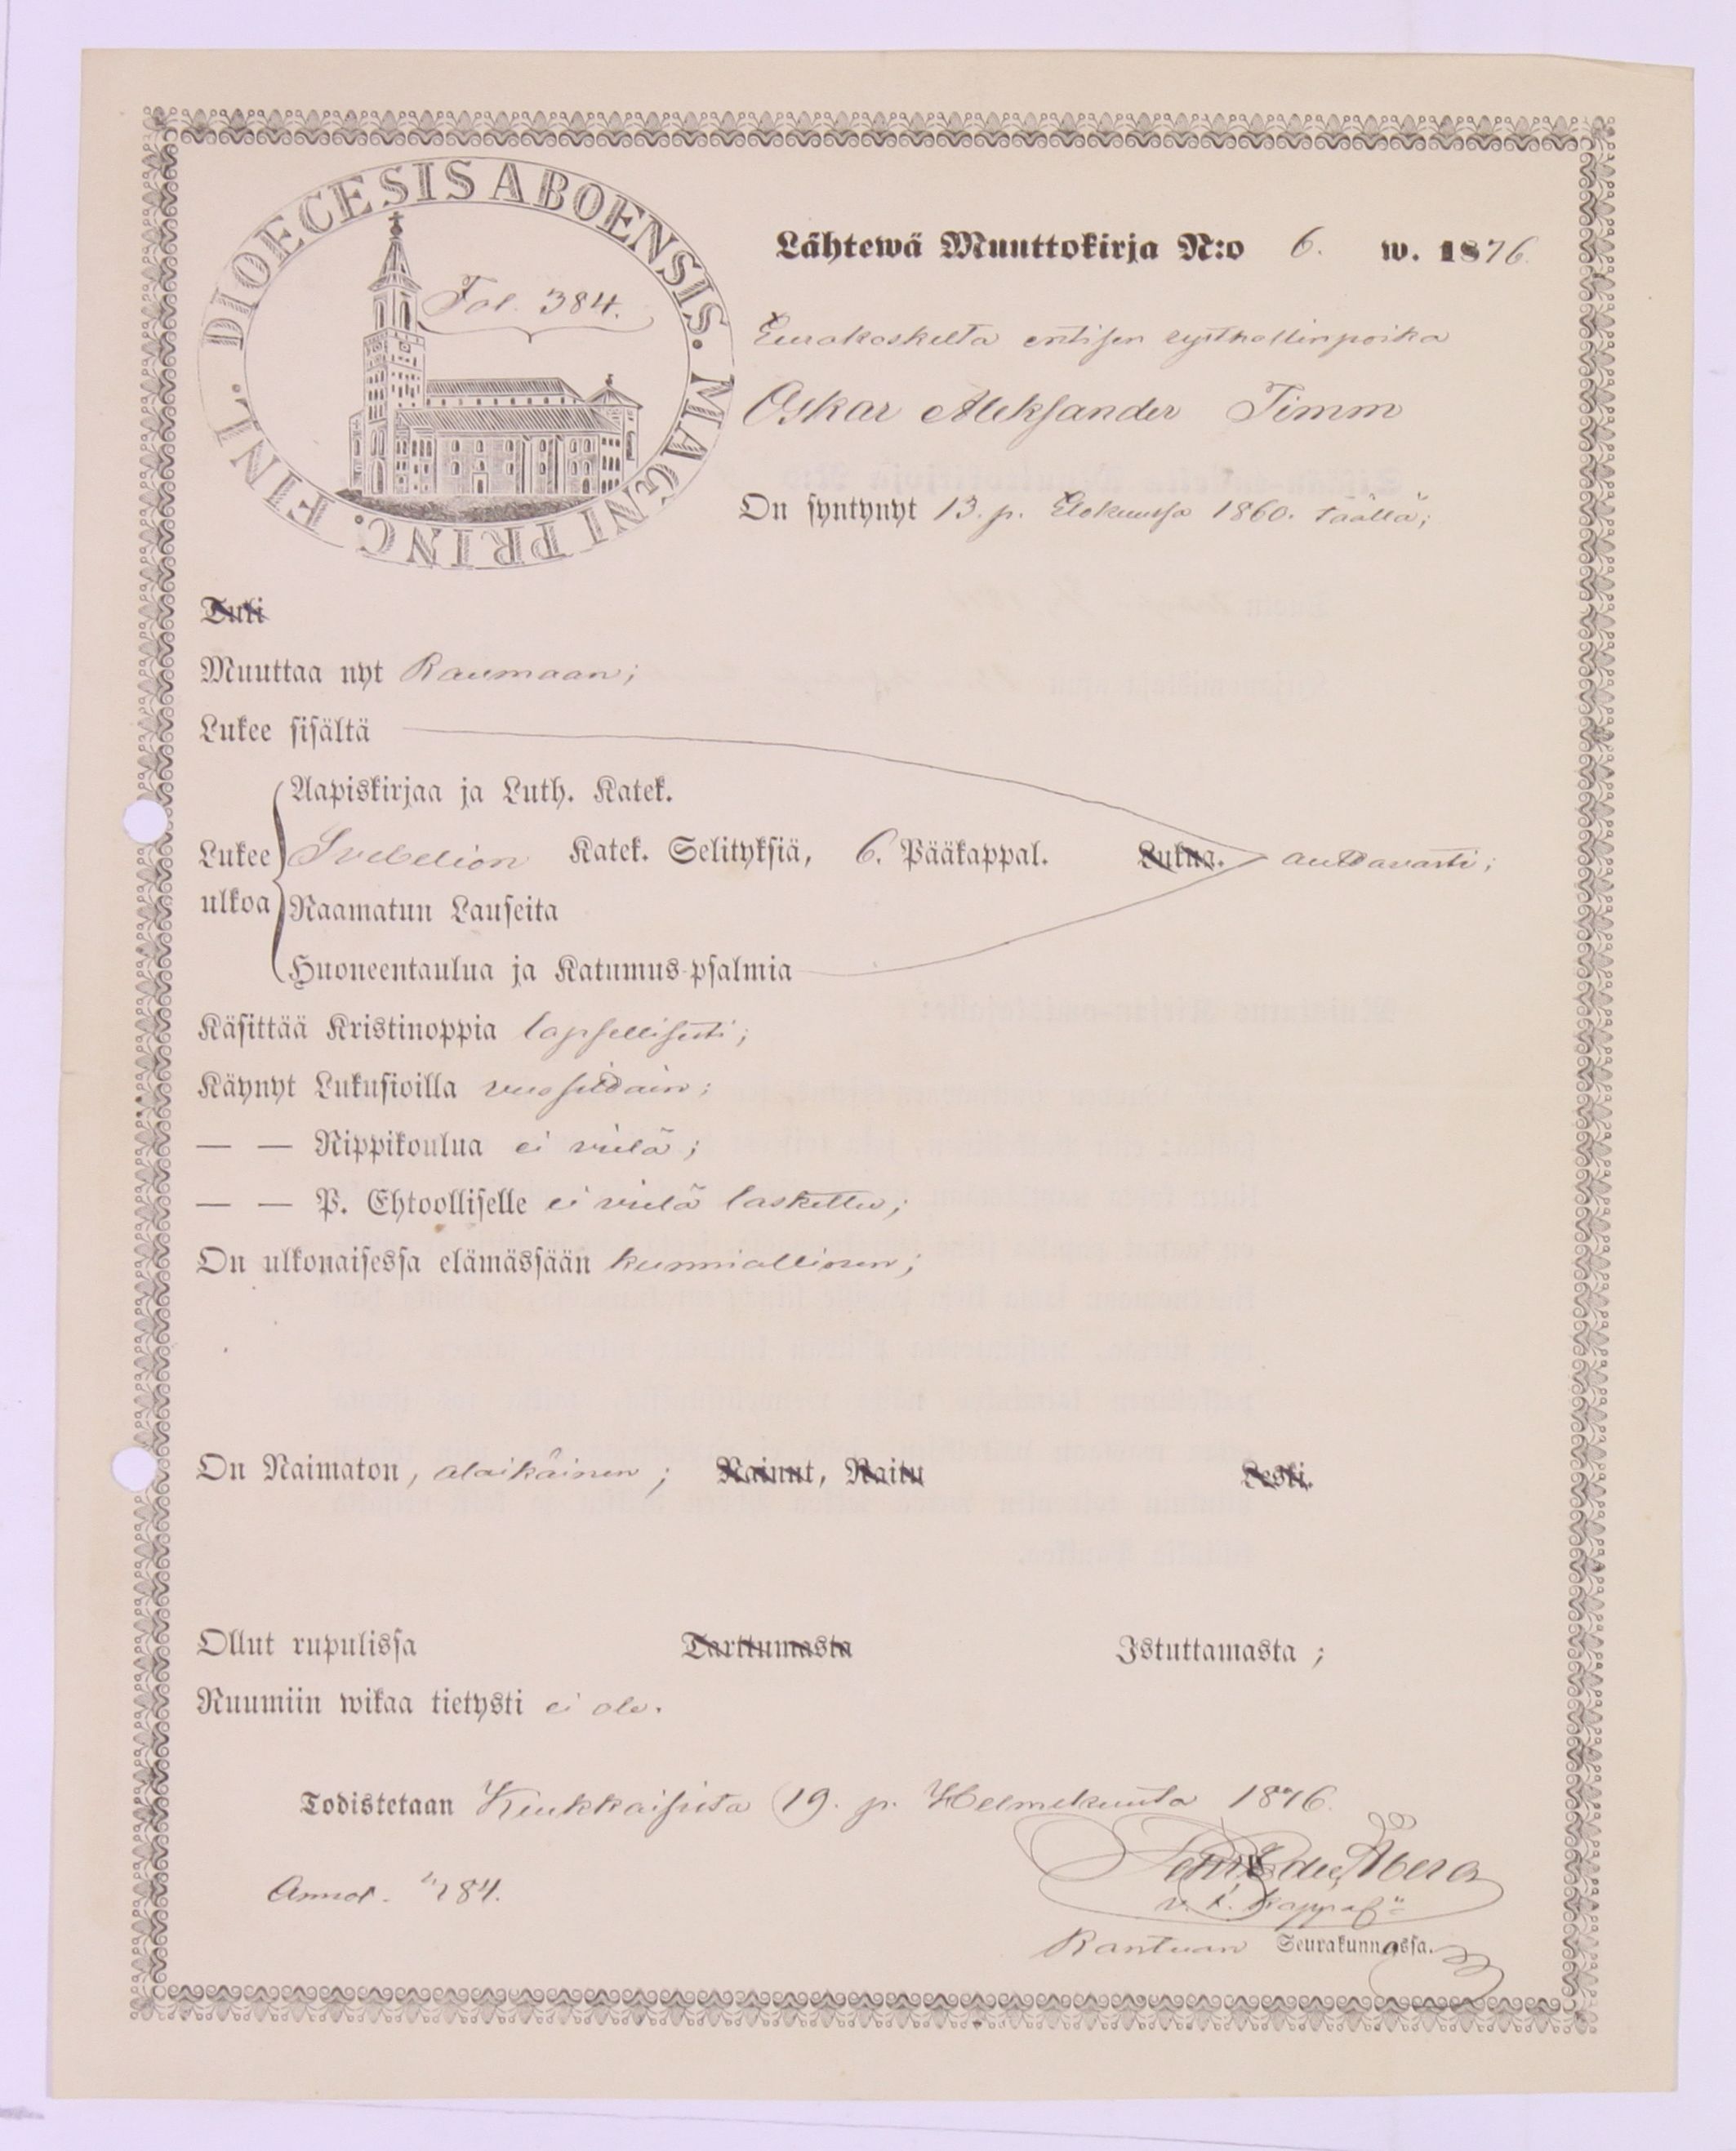 DIOECESIS ABOENSIS. MAGNI PRINC. FINL.
Fol. 384.
Lähtewä Muuttokirja N:o 6. w. 1876.
Eurakoskelta entisen rysthollinpoika
Oskar Aleksander Timm
On syntynyt 13. p. Elokuussa 1860. täällä;
Tuli
Muuttaa nyt Raumaan;
Lukee sisältä
Aapiskirjaa ja Luth. Katek.
Lukee Svebelion Katek. Selityksiä, 6. Pääkappal. Lukua. auttavasti;
ulkoa Raamatun Lauseita
Huoneentaulua ja Katumus-psalmia
Käsittää Kristinoppia lapsellisesti;
Käynyt Lukusioilla vuosittain;
— — Rippikoulua ei vielä;
— — P. Ehtoolliselle ei vielä laskettu;
On ulkonaisessa elämässään kunniallinen;
On Naimaton, alaikäinen; Nainut, Naitu Leski.
Ollut rupulissa Tarttumasta Istuttamasta;
Ruumiin wikaa tietysti ei ole.
Todistetaan Kiukkaisista 19. p. Helmikuuta 1876.
Åberg
Annot. 184.
v. t. kappal:
Kantuan Seurakunnassa.